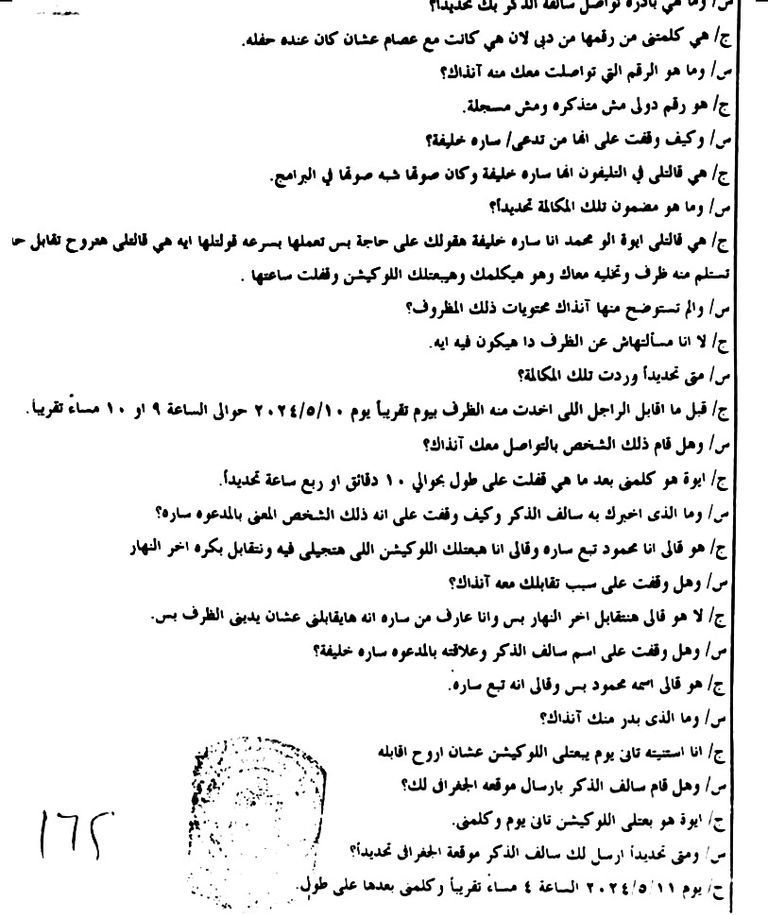 س/ وما هي بادرة تواصل سالفة الذكر بك تحديداً؟
ج/ هي كلمتنى من رقمها من دبى لان هي كانت مع عصام عشان كان عنده حفله.
س/ وما هو الرقم التي تواصلت معك منه آنذاك؟
ج/ هو رقم دولى مش متذكره ومش مسجلة.
س/ وكيف وقفت على انها من تدعى/ ساره خليفة؟
ج/ هي قالتلى في التليفون انها ساره خليفة وكان صوتها شبه صوتها في البرامج.
س/ وما هو مضمون تلك المكالمة تحديداً؟
ج/ هي قالتلى ايوة الو محمد انا ساره خليفة هقولك على حاجة بس تعملها بسرعه قولتلها ايه هي قالتلى هتروح تقابل حد
تستلم منه ظرف وتخليه معاك وهو هيكلمك وهيبعتلك اللوكيشن وقفلت ساعتها .
س/ والم تستوضح منها آنذاك محتويات ذلك المظروف؟
ج/ لا انا مسألتهاش عن الظرف دا هيكون فيه ايه.
س/ متى تحديداً وردت تلك المكالمة؟
ج/ قبل ما اقابل الراجل اللى اخدت منه الظرف بيوم تقريباً يوم ٢٠٢٤/٥/١٠ حوالى الساعة ٩ او ١٠ مساءً تقريباً.
س/ وهل قام ذلك الشخص بالتواصل معك آنذاك؟
ج/ ايوة هو كلمنى بعد ما هي قفلت على طول بحوالي ١٠ دقائق او ربع ساعة تحديداً.
س/ وما الذى اخبرك به سالف الذكر وكيف وقفت على انه ذلك الشخص المعنى بالمدعوه ساره؟
ج/ هو قالى انا محمود تبع ساره وقالى انا هبعتلك اللوكيشن اللى هتجيلى فيه ونتقابل بكره اخر النهار
س/ وهل وقفت على سبب تقابلك معه آنذاك؟
ج/ لا هو قالى هنتقابل اخر النهار بس وانا عارف من ساره انه هايقابلنى عشان يدينى الظرف بس.
س/ وهل وقفت على اسم سالف الذكر وعلاقته بالمدعوه ساره خليفة؟
ج/ هو قالى اسمه محمود بس وقالى انه تبع ساره.
س/ وما الذى بدر منك آنذاك؟
ج/ انا استنيته تانى يوم يبعتلى اللوكيشن عشان اروح اقابله
س/ وهل قام سالف الذكر بارسال موقعه الجغرافى لك؟
ج/ ايوة هو بعتلى اللوكيشن تانى يوم وكلمنى.
س/ ومتى تحديداً ارسل لك سالف الذكر موقعة الجغرافى تحديداً؟
ج/ يوم ٢٠٢٤/٥/١١ الساعة ٤ مساءً تقريباً وكلمنى بعدها على طول.
١٦٥